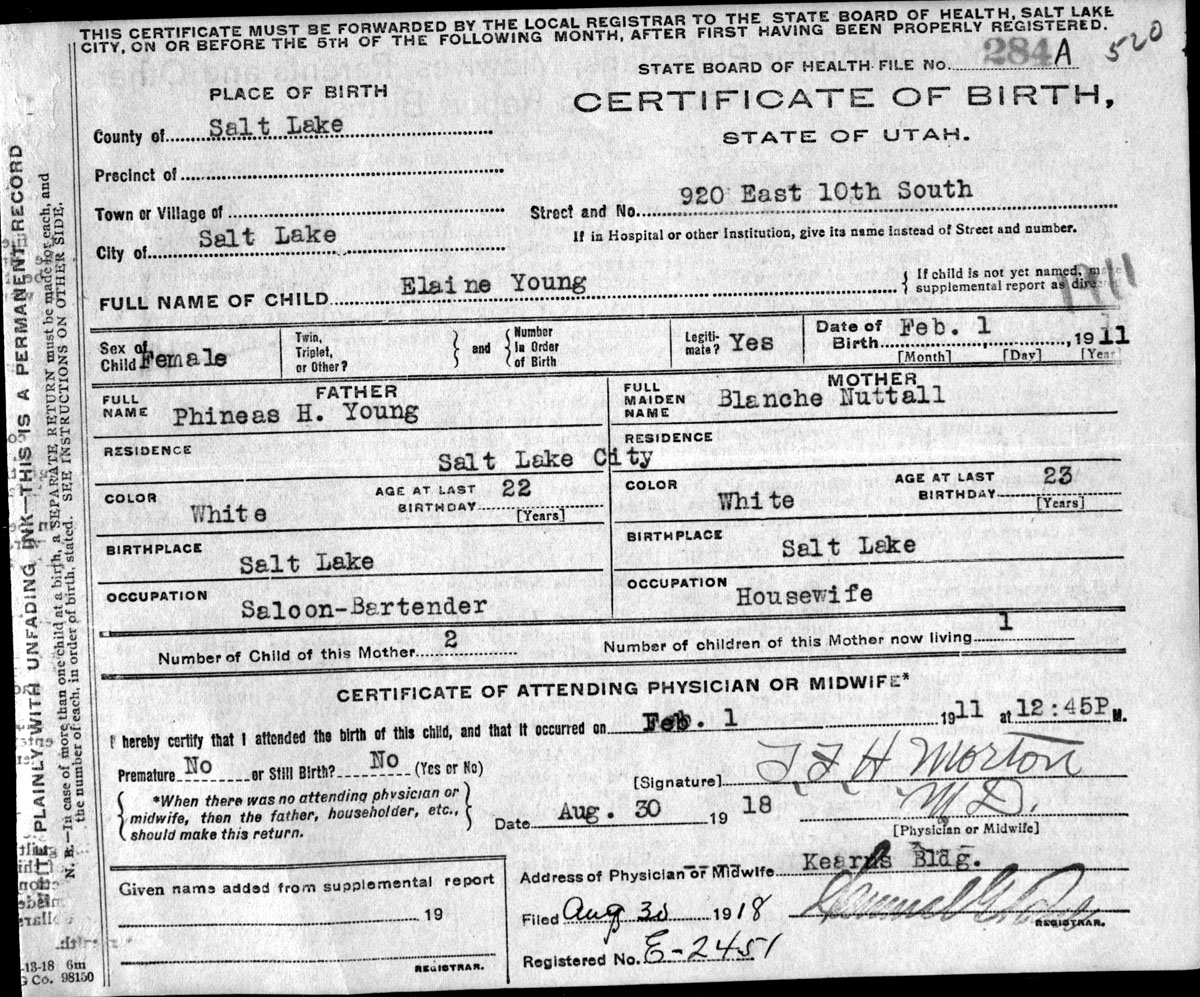 THIS CERTIFICATE MUST BE FORWARDED BY THE LOCAL REGISTRAR TO THE STATE BOARD OF HEALTH, SALT LAKE
CITY, ON OR BEFORE THE 5TH OF THE FOLLOWING MONTH, AFTER FIRST HAVING BEEN PROPERLY REGISTERED.
520
STATE BOARD OF HEALTH FILE No. 284 A
PLACE OF BIRTH
CERTIFICATE OF BIRTH,
STATE OF UTAH.
County of Salt Lake
Precinct of
Town or Village of
Street and No. 920 East 10th South
City of Salt Lake
If in Hospital or other Institution, give its name instead of Street and number.
FULL NAME OF CHILD Elaine Young
If child is not yet named, make
supplemental report as
1911
Sex of Child Female
Twin, Triplet, or Other?
and
Number In Order of Birth
Legiti-mate? Yes
Date of Birth Feb. 1, 1911
[Month] [Day] [Year
FATHER
FULL NAME Phineas H. Young
MOTHER
FULL MAIDEN NAME Blanche Nuttall
RESIDENCE
RESIDENCE
Salt Lake City
COLOR White
AGE AT LAST BIRTHDAY 22 [Years]
COLOR White
AGE AT LAST BIRTHDAY 23 [Years]
BIRTHPLACE Salt Lake
BIRTHPLACE Salt Lake
OCCUPATION Saloon-Bartender
OCCUPATION Housewife
Number of Child of this Mother 2
Number of children of this Mother now living 1
CERTIFICATE OF ATTENDING PHYSICIAN OR MIDWIFE*
I hereby certify that I attended the birth of this child, and that it occurred on Feb. 1 1911 at 12:45P M.
Premature No or Still Birth? No (Yes or No)
[Signature] T F H Morton
*When there was no attending physician or
midwife, then the father, householder, etc.,
should make this return.
Date Aug. 30 1918
M D.
[Physician or Midwife]
Address of Physician or Midwife Kearns Bldg.
Given name added from supplemental report
19
REGISTRAR.
Filed Aug 30 1918
REGISTRAR.
Registered No. E-2451
PLAINLY WITH UNFADING INK—THIS IS A PERMANENT RECORD
N. B.—In case of more than one child at a birth, a SEPARATE RETURN must be made for each, and
the number of each, in order of birth, stated. SEE INSTRUCTIONS ON OTHER SIDE.
-13-18 6m
Co. 98150